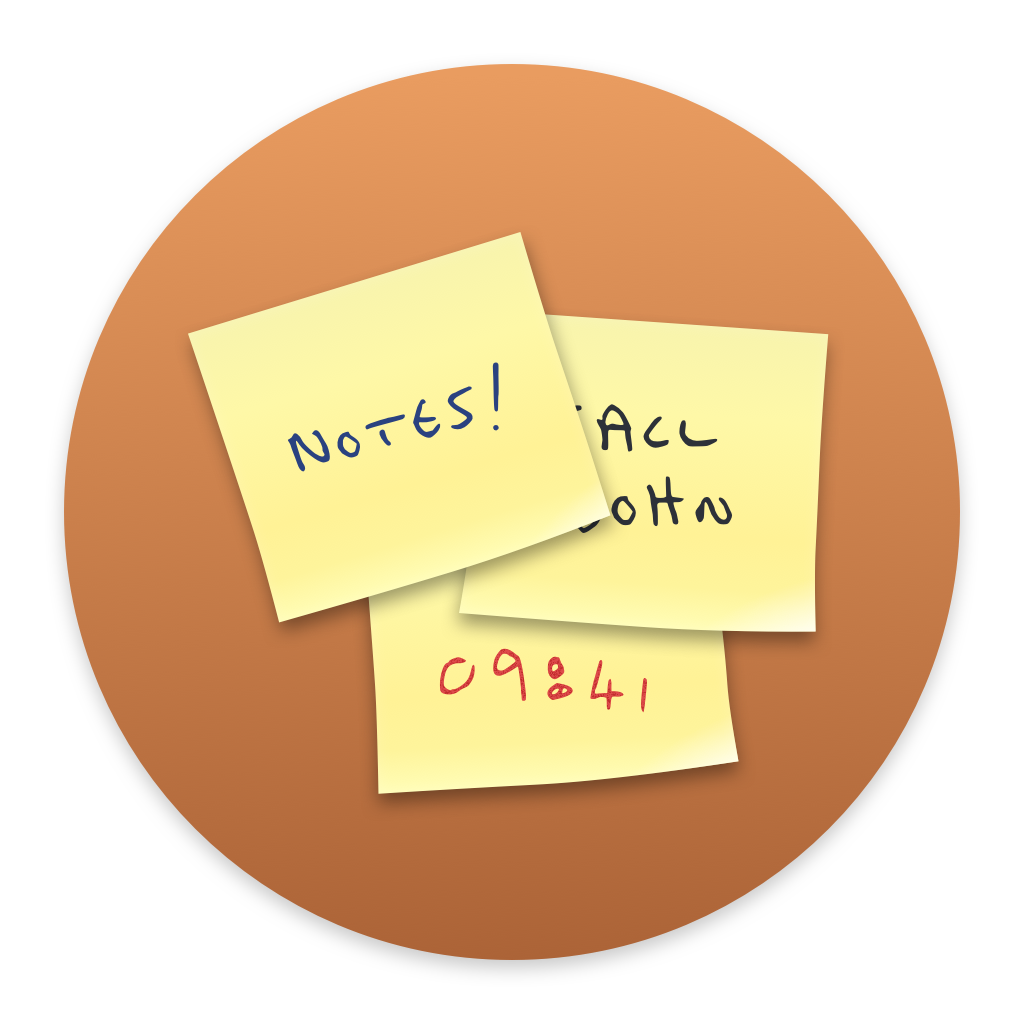 NOTES!
CALL
JOHN
09:41